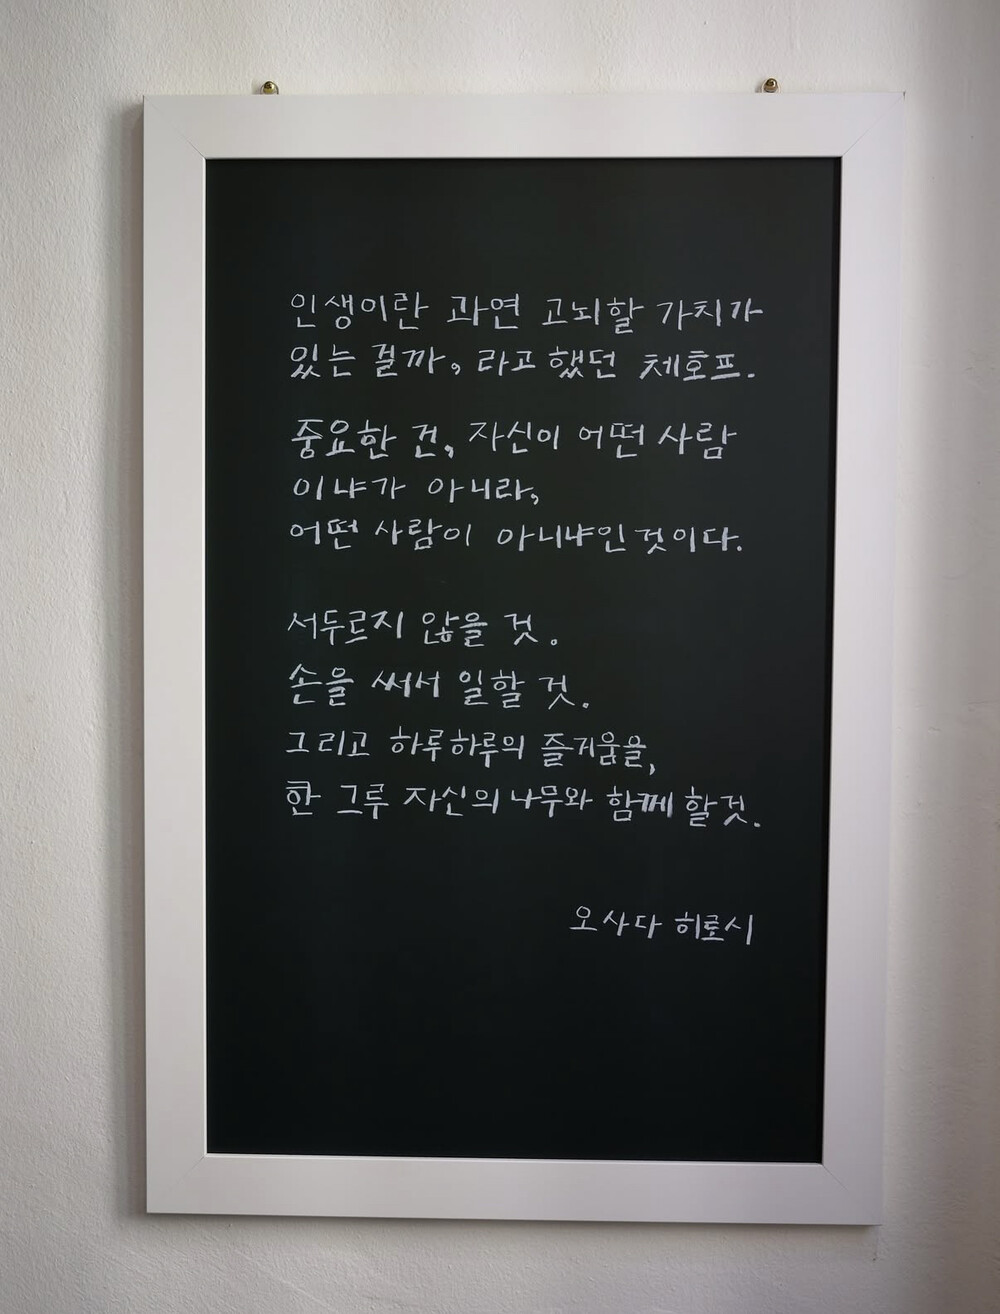 인생이란 과연 고뇌할 가치가
있는 걸까, 라고 했던 체호프.
중요한 건, 자신이 어떤 사람
이냐가 아니라,
어떤 사람이 아니냐인 것이다.
서두르지 않을 것.
손을 써서 일할 것.
그리고 하루하루의 즐거움을,
한 그루 자신의 나무와 함께 할 것.
오사다 히로시